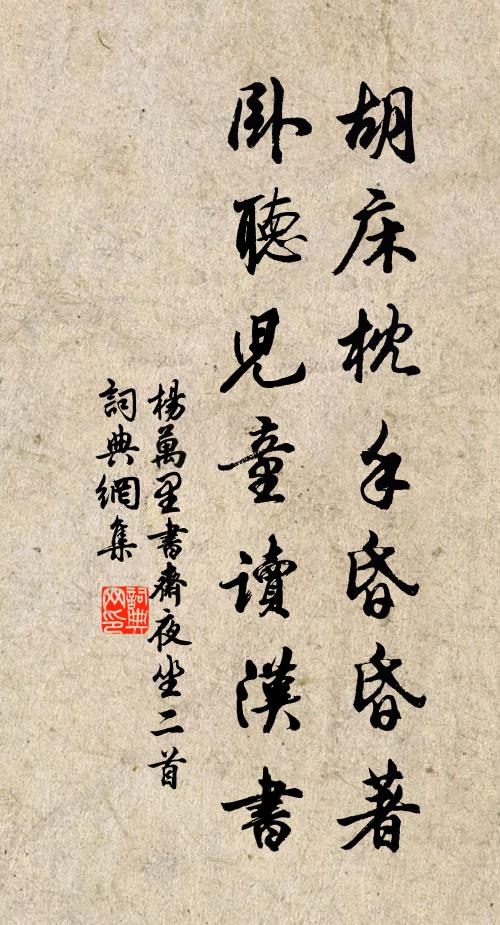 胡床枕手昏昏著
臥聽兒童讀漢書
楊萬里書齋夜坐二首
詞典網集
詞典網印